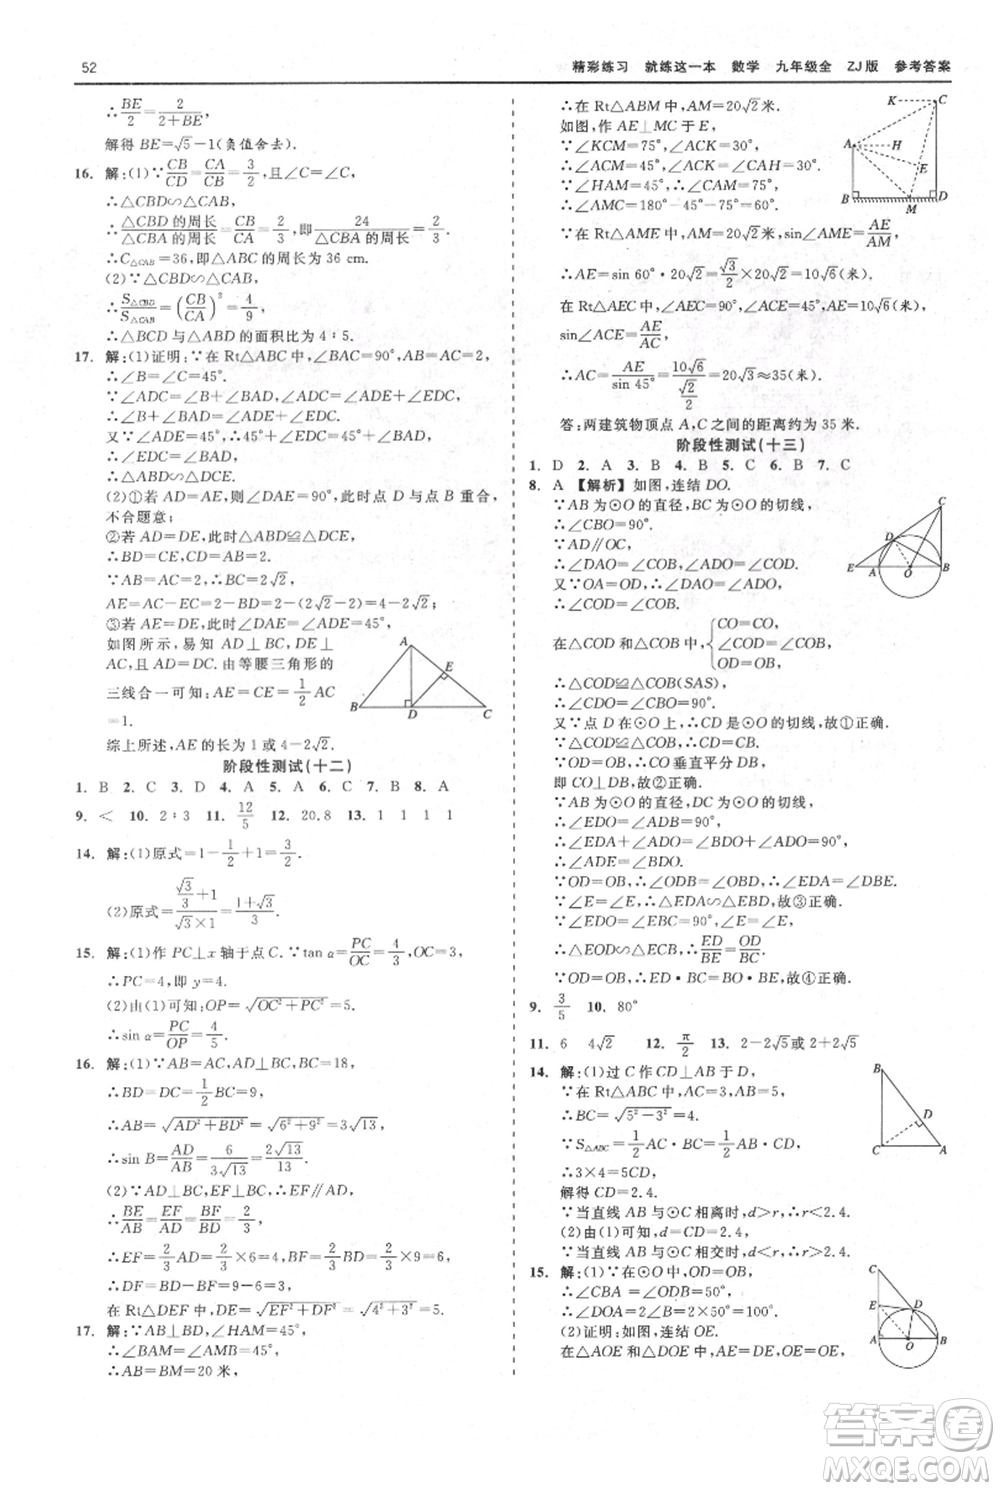 52
精彩练习 就练这一本 数学 九年级全 ZJ版 参考答案
∴BE/2=2/(2+BE),
解得 BE=√5-1(负值舍去).
16. 解:(1)∵CB/CD=CA/CB=2/3,且∠C=∠C,
∴△CBD∽△CAB,
∴△CBD的周长/△CBA的周长=CB/CA=2/3,即24/△CBA的周长=2/3.
∴C△CAB=36,即△CBA的周长为 36 cm.
(2)∵△CBD∽△CAB,
∴S△CBD/S△CAB=(CB/CA)²=4/9,
∴△BCD与△ABD的面积比为 4∶5.
17. 解:(1)证明:∵在 Rt△ABC 中,∠BAC=90°,AB=AC=2,
∴∠B=∠C=45°.
∵∠ADC=∠B+∠BAD,∠ADC=∠ADE+∠EDC,
∴∠B+∠BAD=∠ADE+∠EDC.
又∵∠ADE=45°,∴45°+∠BAD=45°+∠EDC.
∴∠BAD=∠EDC.
∴△ABD∽△DCE.
(2)①若 AD=AE,此时∠DAE=90°,此时点 D 与点 B 重合,
不合题意;
②若 AD=DE,此时△ABD≌△DCE,
∴AB=DC=2.∴BD=EC.
∵BC=2√2,∴EC=BD=BC-DC=2√2-2,
AE=AC-EC=2-BD=2-(2√2-2)=4-2√2.
③若 AE=DE,此时∠DAE=∠ADE=45°,
如图所示,易知 AD⊥BC,DE⊥
AC,且 AD=DC.由等腰三角形的
三线合一可知:AE=CE=1/2AC
=1.
综上所述,AE 的长为 1 或 4-2√2.
A
E
B D C
阶段性测试(十二)
1. B 2. C 3. D 4. A 5. A 6. B 7. C 8. A
9. < 10. 2∶3 11. 12/5 12. 20.8 13. 1 1 1 1
14. 解:(1)原式=1-1/2+1=3/2.
(2)原式=(√3/3+1)/(√3×1)=(1+√3)/3.
15. 解:(1)作 PC⊥x 轴于点 C.∵tan α=PC/OC=4/3,OC=3.
∴PC=4,即 y=4.
(2)由(1)可知:OP=√(OC²+PC²)=5.
∴sin α=PC/OP=4/5.
16. 解:(1)∵AB=AC,AD⊥BC,BC=18,
∴BD=DC=1/2BC=9,
∴AB=√(AD²+BD²)=√(6²+9²)=3√13,
∴sin B=AD/AB=6/(3√13)=2√13/13.
(2)∵AD⊥BC,EF⊥BC,∴EF∥AD,
∴BE/AB=EF/AD=BF/BD=2/3,
∴EF=2/3AD=2/3×6=4,BF=2/3BD=2/3×9=6.
∴DF=BD-BF=9-6=3,
在 Rt△DEF 中,DE=√(EF²+DF²)=√(4²+3²)=5.
17. 解:∵AB⊥BD,∠HAM=45°,
∴∠BAM=∠AMB=45°,
∴AB=BM=20 米,
∴在 Rt△ABM 中,AM=20√2米.
如图,作 AE⊥MC 于点 E,
∵∠KCM=75°,∠ACK=30°,
∴∠ACM=45°,∠ACK=∠CAH=30°.
∵∠HAM=45°,
∴∠AMC=180°-45°-75°=60°.
∵在 Rt△AME 中,AM=20√2米,sin∠AME=AE/AM,
∴AE=sin 60°·20√2=√3/2×20√2=10√6(米),
在 Rt△AEC 中,∠AEC=90°,∠ACE=45°,AE=10√6(米),
sin∠ACE=AE/AC,
∴AC=AE/sin 45°=10√6/(√2/2)=20√3≈35(米).
答:两建筑物顶点 A,C 之间的距离约为 35 米.
K C
A H
E
B M D
阶段性测试(十三)
1. D 2. A 3. B 4. B 5. B 6. B 7. C
8. A 【解析】如图,连结 DO.
∵AB 为⊙O 的直径,BC 为⊙O 的切线,
∴∠CBO=90°.
∵AD∥OC,
∴∠DAO=∠COB,∠ADO=∠COD.
又∵OA=OD,∴∠DAO=∠ADO,
∴∠COD=∠COB.
在△COD 和△COB 中,{CO=CO,
∠COD=∠COB,
OD=OB,
∴△COD≌△COB(SAS).
又∵点 D 在⊙O 上,∴CD 是⊙O 的切线,故①正确.
∵△COD≌△COB,
∴CD=CB,∵OD=OB,∴CO 垂直平分 DB,
即 CO⊥DB,故②正确.
∵AB 为⊙O 的直径,DC 为⊙O 的切线,
∴∠EDO=∠ADB=90°,
∴∠EDA+∠ADO=∠BDO+∠ADO=90°,
∴∠ADE=∠BDO.
∵OD=OB,∴∠ODB=∠OBD,∴∠EDA=∠DBE.
∵∠E=∠E,∴△EDA∽△EBD,故③正确.
∵∠EDO=∠EBC=90°,∠E=∠E,
∴△EOD∽△ECB,∴ED/BE=OD/BC,
∵OD=OB,∴ED·BC=BO·BE,故④正确.
C
D
E A O B
9. 3/5 10. 80°
11. 6 4√2 12. π/2 13. 2-2√5或 2+2√5
14. 解:(1)过 C 作 CD⊥AB 于 D,
∵在 Rt△ABC 中,∠C=90°,
∴BC=√(5²-3²)=4.
∵S△ABC=1/2AC·BC=1/2AB·CD,
∴3×4=5CD,
解得 CD=2.4.
∵当直线 AB 与⊙C 相离时,d>r,∴r<2.4.
(2)由(1)可知,d=CD=2.4,
∵当直线 AB 与⊙C 相交时,d<r,∴r>2.4.
B
D
C A
15. 解:(1)∵在⊙O 中,OD=OB,
∴∠DOA=2∠B=2×50°=100°.
(2)证明:如图,连结 OE.
在△AOE 和△DOE 中,
C
E D
A O B
答案圈
MXQE.COM